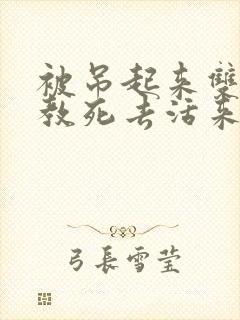 被吊起来双
教死去活来
弓長雪莹